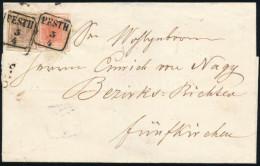 PESTH
3
4
PESTH
3
4
Herrn Emrich von Nagy
Bezirks-Richter
Fünfkirchen